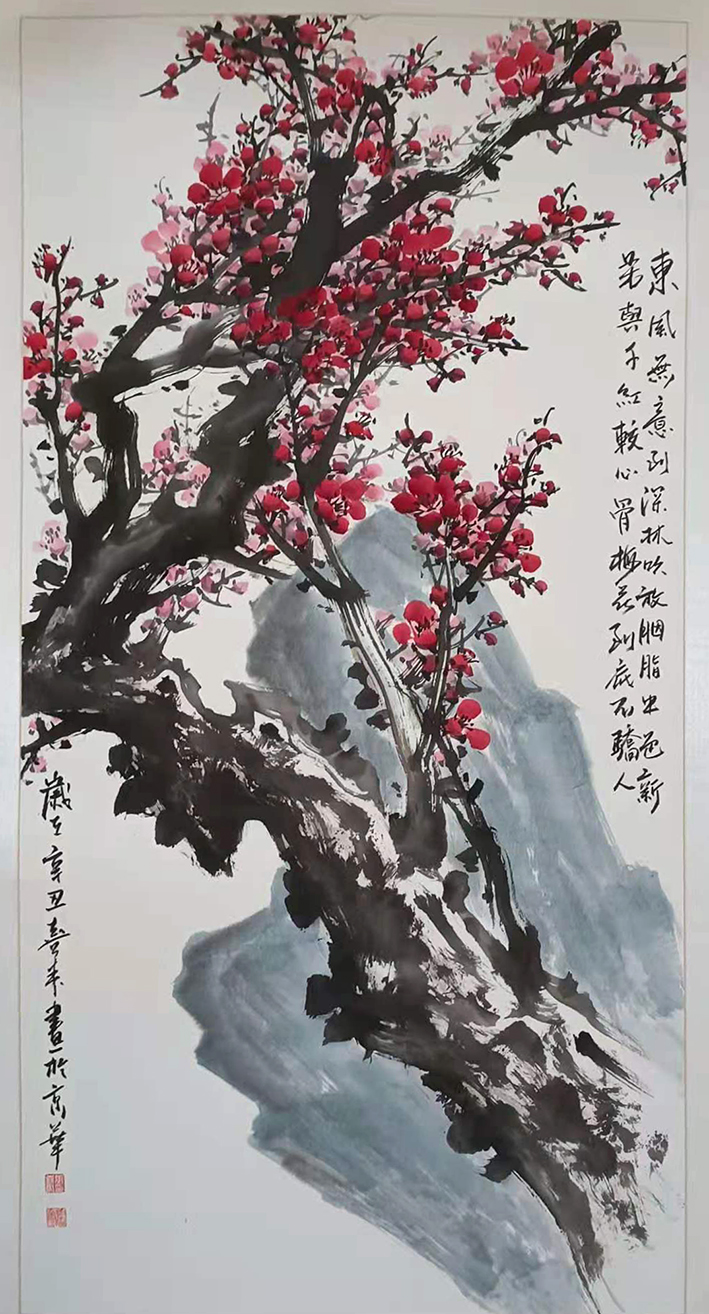 東風無意到深林吹放胭脂出色新
若與千紅較心骨梅花到底不驕人
歲在辛丑喜来畫於京華